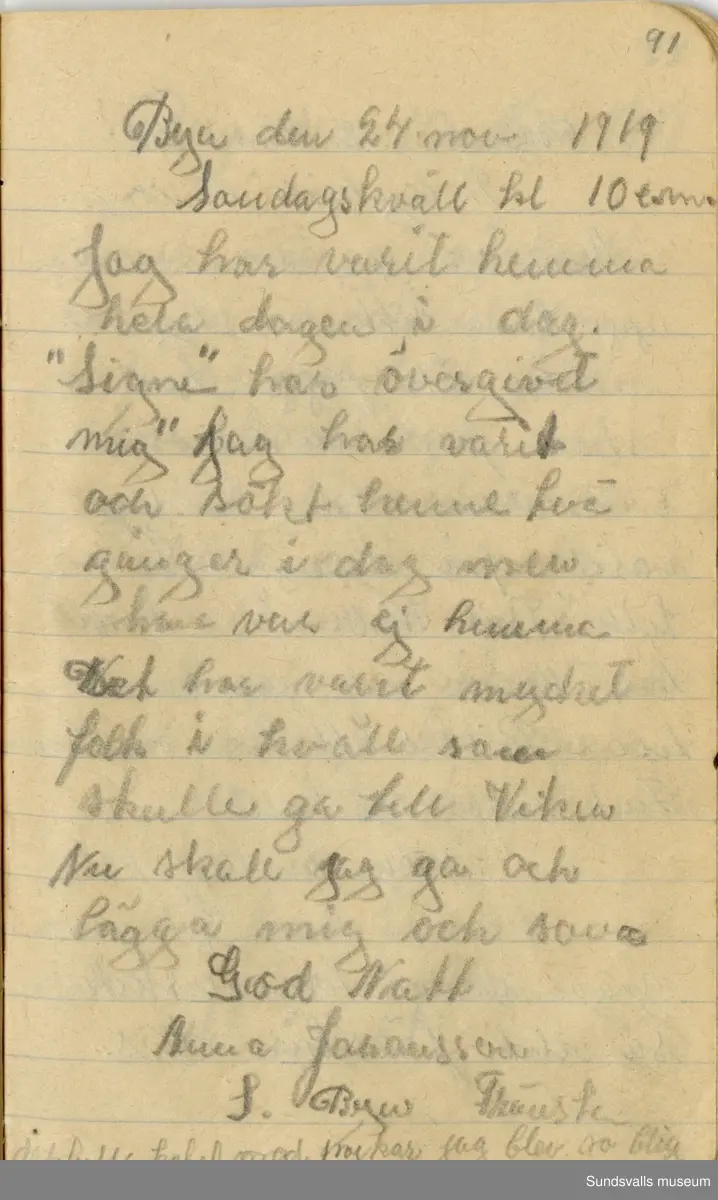 91
Byn den 24 nov 1919
Sondagskväll kl 10 em.
Jag har varit hemma
hela dagen i dag.
"Signe" har övergivit
mig" Jag har varit
och sökt henne två
gånger i dag men
hon var ej hemma
Det har varit mycket
folk i kväll som
skulle ga till Viken
Nu skall jag ga och
lägga mig och sova
God Natt
Anna Johansson
S. Byn
jag blev so
Sundsvalls museum